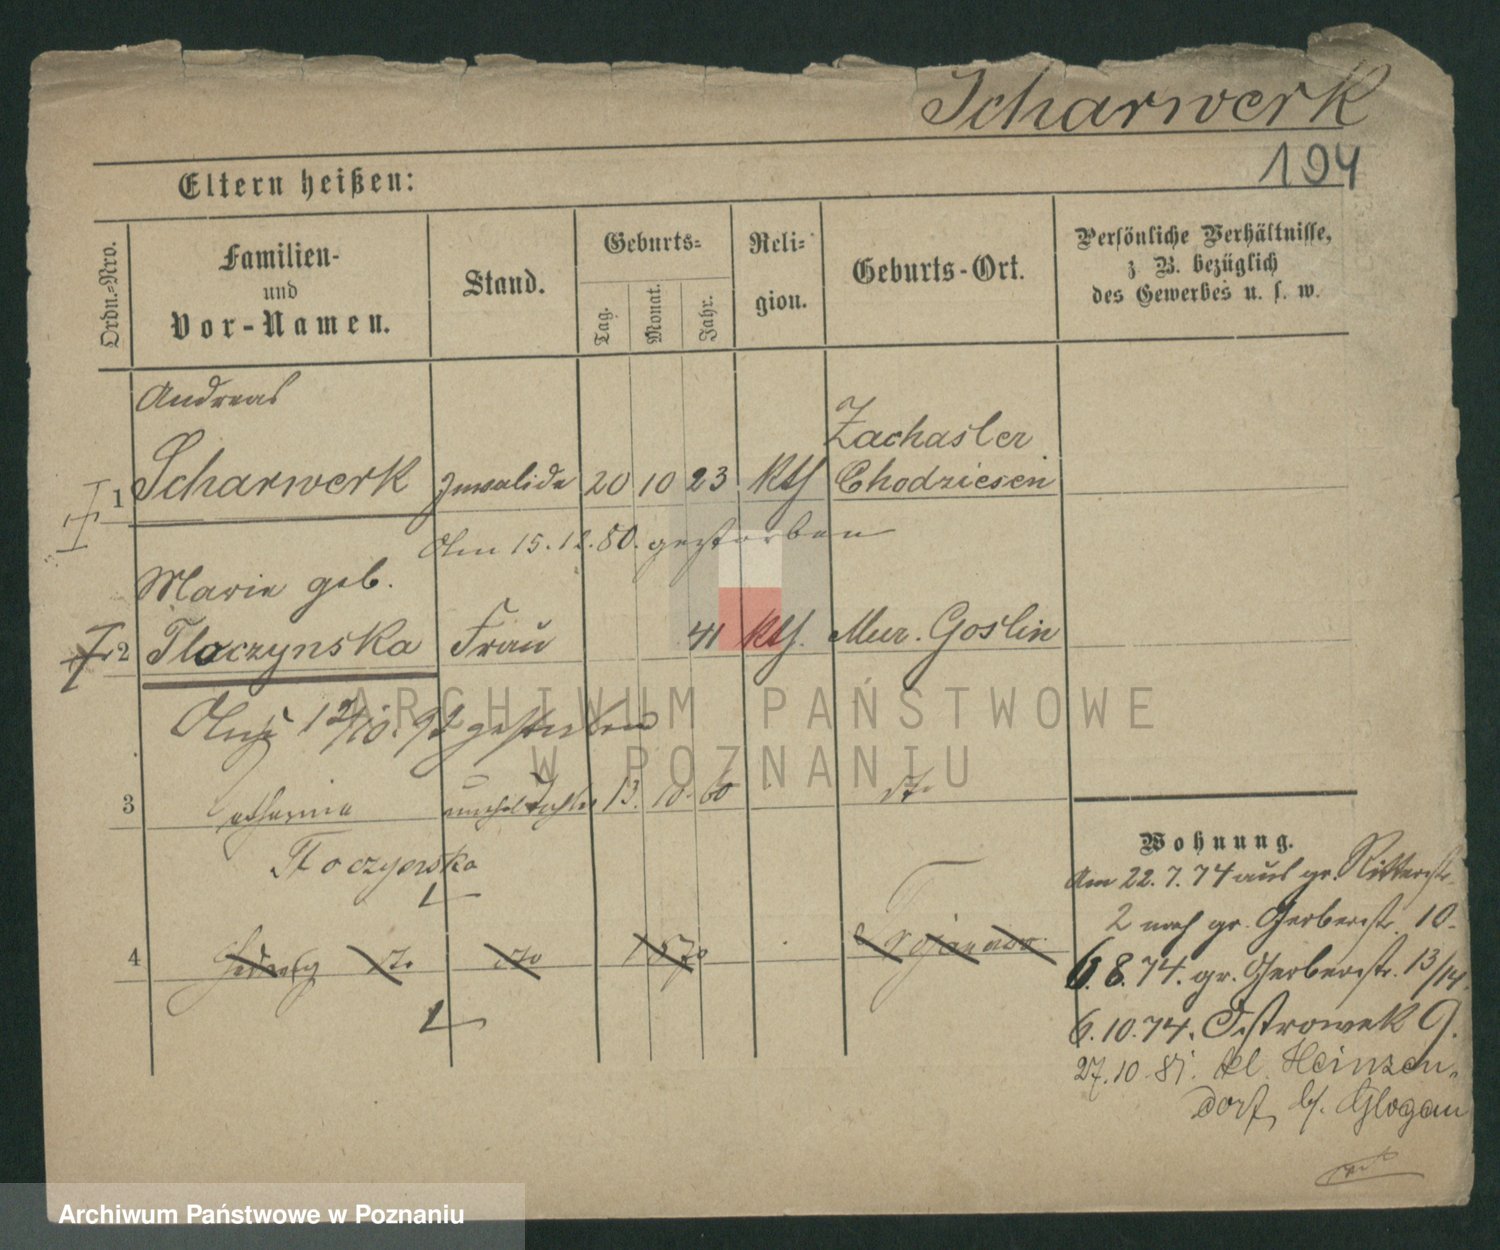 Scharwerk
194
Eltern heißen:
Ordn.-Nro.
Familien-
und
Vor-Namen.
Stand.
Geburts-
Tag.
Monat.
Jahr.
Reli-
gion.
Geburts-Ort.
Persönliche Verhältnisse,
z B. bezüglich
des Gewerbes u. s. w.
Andreas
Zachasler
1 Scharwerk Invalide 20 10 23 kth Chodziesen
Am 15.12.80. gestorben
Marie geb.
2 Tloczynska Frau 41 kth. Mur. Goslin
12/10.92 gestorben
3 Catharina unehel Tochter 13. 10. 60 dto
Tloczynska
4 Hedwig dto dto 1870
Wohnung.
Am 22.7.74 aus gr. Ritterstr.
2 nach gr. Gerberstr. 10.
6.8.74. gr. Gerberstr. 13/14.
6.10.74. Ostrowek 9.
27.10.81. Kl. Heinzen-
dorf, b/. Glogau
ARCHIWUM PAŃSTWOWE
W POZNANIU
Archiwum Państwowe w Poznaniu